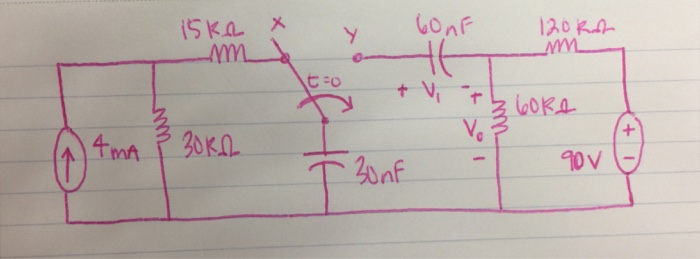 15KΩ X Y 60nF 120KΩ
t=0
+ V₁ -
+
4mA 30KΩ V₀ 60KΩ +
- 90V -
30nF